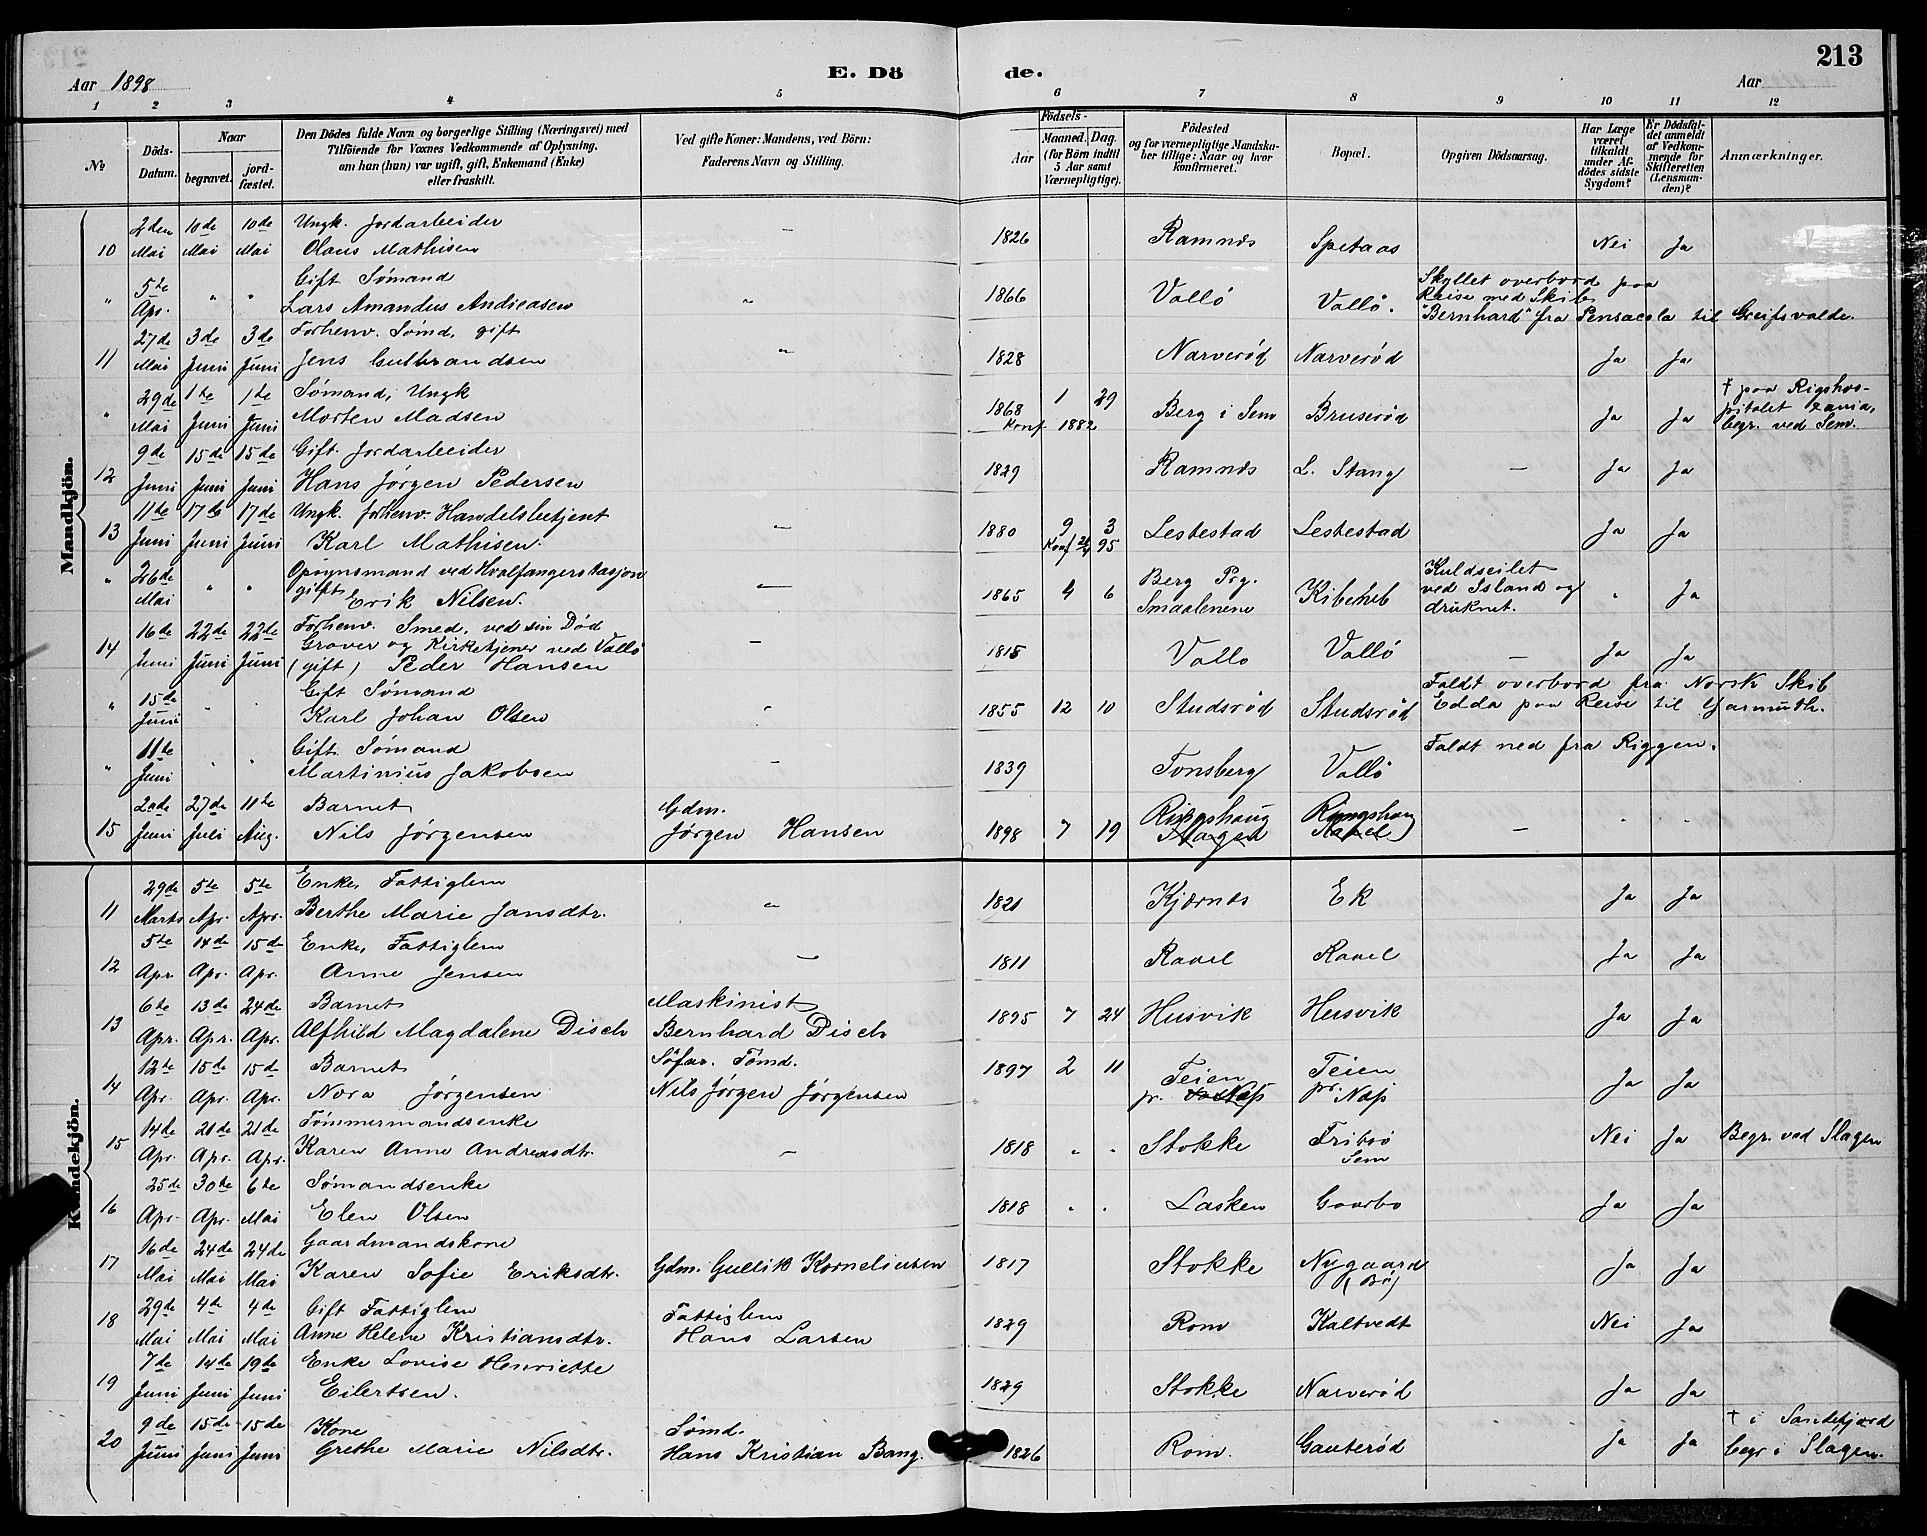 213
Aar 1898
E. Dö
de.
Aar
1 2 3 4 5 6 7 8 9 10 11 12
No
Döds-Datum.
Naar
begravet. jord-fæstet.
Den Dödes fulde Navn og borgerlige Stilling (Næringsvei) med
Tilföiende for Voxnes Vedkommende af Oplysning,
om han (hun) var ugift, gift, Enkemand (Enke)
eller fraskilt.
Ved gifte Koner: Mandens, ved Börn:
Faderens Navn og Stilling.
Födsels-
Aar
Maaned. Dag.
(for Börn indtil
5 Aar samt
Værnepligtige).
Födested
og for værnepligtige Mandska-
ber tillige: Naar og hvor
konfirmeret.
Bopæl.
Opgiven Dödsaarsag.
Har Læge
været
tilkaldt
under Af-
dödes sidste
Sygdom?
Er Dödsfal-
det anmeldt
af Vedkom-
mende for
Skifteretten
(Lensman-
den)?
Anmærkninger.
Mandkjön.
2den 10de 10de Ungk. Jordarbeider
10 Mai Mai Mai Olaus Mathisen – 1826 Ramnæs Spetaas Nei Ja
5te Gift Sömand
" Apr. " " Lars Amandus Andreasen " 1866 Vallö Vallö. Skyllet overbord paa
Reise med Skib
"Bernhard" fra Pensacola til Greifsvalde.
27de 3de 3de Forhenv. Sömd, gift
11 Mai Juni Juni Jens Gulbrandsen " 1828 Narveröd Narveröd Ja Ja
29de 1te 1te Sömand, Ungk
" Mai Juni Juni Morten Madsen 1868 1 29 Berg i Sem Bruseröd Ja Ja
Konf 1882
† paa Rigshos-
pitalet
begr. ved Sem.
9de 15de 15de Gift Jordarbeider
12 Juni Juni Juni Hans Jörgen Pedersen 1829 Ramnæs L. Stang – Ja Ja
11te 17de 17de Ungk. forhenv. Handelsbetjent
13 Juni Juni Juni Karl Mathisen. – 1880 9 3 Lestestad Lestestad Ja Ja
Konf 95
26de Opsynsmand ved Hvalfangerstasjon
" Mai " " gift Erik Nilsen. – 1865 4 6 Berg Prg.
Smaalenene Kuldseilet
ved Island og
druknet. " Ja
16de 22de 22de Forhenv. Smed, ved sin Död
Graver og Kirketjener ved Vallö
14 Juni Juni Juni (gift) Peder Hansen – 1815 Vallo Vallö – Ja Ja
15de Gift Sömand
" Juni " " Karl Johan Olsen " 1855 12 10 Studsröd Studsröd Faldt overbord fra Norsk Skib
Edda paa Reise til Yarmuth.
11te Gift Sömand
" Juni " " Martinius Jakobsen – 1839 Tonsberg Vallö Faldt ned fra Riggen.
20de 27de 11te Barnet Gdm.
15 Juni Juli Aug. Nils Jörgensen Jörgen Hansen 1898 7 19 Ringshaug
Slagen Ringshaug
Ravel –
Kvindekjön.
29de 5te 5te Enke, Fattiglem
11 Marts Apr. Apr. Berthe Marie Jansdtr. " 1821 Kjærnæs Ek Ja Ja
5te 14de 15de Enke, Fattiglem
12 Apr Apr. Apr. Anne Jensen – 1811 Ravel Ravel Ja Ja
6te 13de 24de Barnet Maskinist
13 Apr. Apr. Apr. Alfhild Magdalene Disch Bernhard Disch 1895 7 24 Husvik Husvik Ja Ja
12te 15de 15de Barnet Söfar. Tömd.
14 Apr. Apr. Apr. Nora Jörgensen Nils Jörgen Jörgensen 1897 2 11 Teien
pr. Teien
pr. Næs Ja Ja
14de 21de 21de Tömmermandsenke
15 Apr. Apr. Apr. Karen Anne Andreasdtr. – 1818 " " Stokke
Sem Nei Ja Begr. ved Slagen
25de 30te 6te Sömandsenke
16 Apr. Apr. Mai Elen Olsen 1818 " " Lasken Gaarbo Ja Ja
16de 24de 24de Gaardmandskone
17 Mai Mai Mai Karen Sofie Eriksdtr. Gdm. Gullik Korneliusen 1817 Stokke Nygaard
(Bö) Ja Ja
29de 4de 4de Gift Fattiglem Fattiglem
18 Mai Mai Mai Anne Helene Kristiansdtr. Hans Larsen 1829 Rom Kaltvedt Nei Ja
7de 14de 19de Enke Lovise Henriette
19 Juni Juni Juni Eilertsen. 1829 Stokke Narveröd Ja Ja
9de 15de 15de Kone Sömd.
20 Juni Juni Juni Grethe Marie Nilsdtr. Hans Kristian Bang. 1826 Rom. Gauteröd Ja Ja † i Sandefjord
begr i Slagen.